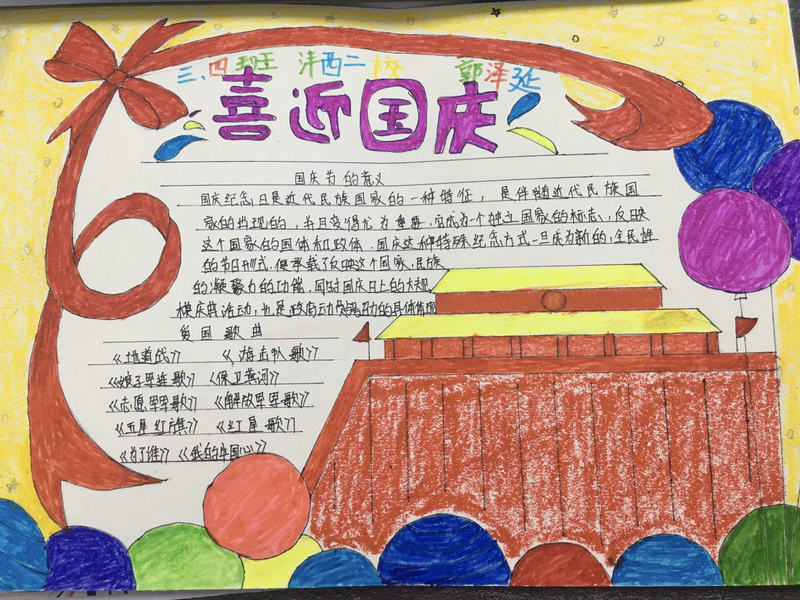 三、四班 沣西二校 郭泽延
喜近国庆
国庆节的意义
国庆纪念日是近代民族国家的一种特征，是伴随近代民族国
家的出现的，并且变得尤为重要，它成为一个独立国家的标志、反映
这个国家的国体和政体．国庆这种特殊纪念方式一旦成为新的、全民性
的节日形式，便承载了反映这个国家、民族
的凝聚力的功能．同时国庆日上的大规
模庆典活动，也是政府动员号召力的具体体现
爱国歌曲
《地道战》 《游击队歌》
《娘子军连歌》 《保卫黄河》
《志愿军军歌》 《解放军军歌》
《五星红旗》 《红星歌》
《为了谁》 《我的中国心》